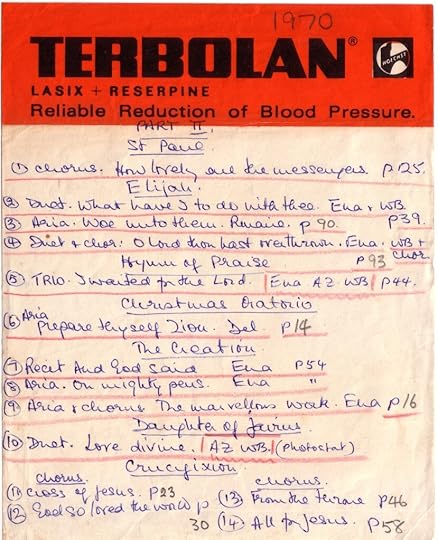 1970
TERBOLAN®
HOECHST
LASIX + RESERPINE
Reliable Reduction of Blood Pressure.
PART II
St Paul
(1) Chorus. How lovely are the messengers. p 125.
Elijah.
(2) Duet. What have I to do with thee. Ena & WB.
p 39.
(3) Aria. Woe unto them. Romaine. p 90.
(4) Duet & chor: O Lord thou hast overthrown. Ena. WB + Chor
Hymn of Praise p 93
(5) TRIO. I waited for the Lord. | Ena AZ. WB | p 44.
Christmas Oratorio
(6) Aria Prepare thyself Zion. Del. p 14
The Creation.
(7) Recit And God said Ena p 54
(8) Aria. On mighty pens. Ena "
(9) Aria & chorus The marvellous work. Ena p 16
Daughter of Jairus.
(10) Duet. Love divine. | AZ WB. | (Photostat)
Crucifixion
Chorus.
(11) Cross of Jesus. p 23
(12) God so loved the world p 30
Chorus.
(13) From the throne p 46
(14) All for Jesus. p 58